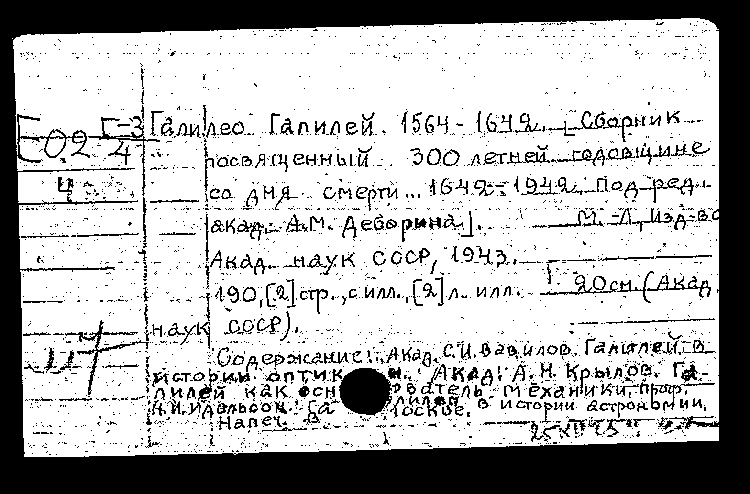 Г-3
Е02 4
Ч
Галилео Галилей. 1564-1642. [Сборник
посвященный 300 летней годовщине
со дня смерти... 1642-1942. Под ред.
акад. А.М. Деборина]. М.-Л., Изд-во
Акад. наук СССР, 1943.
190,[2] стр., с илл., [2] л. илл. 20см. (Акад.
наук СССР).
Содержание: Акад. С.И. Вавилов. Галилей в
истории оптик и. Акад. А.Н. Крылов. Га-
лилей как осн ователь механики. Проф.
Н.И. Идельсон. Га лилей в истории астрономии.
Напеч. в Москве.